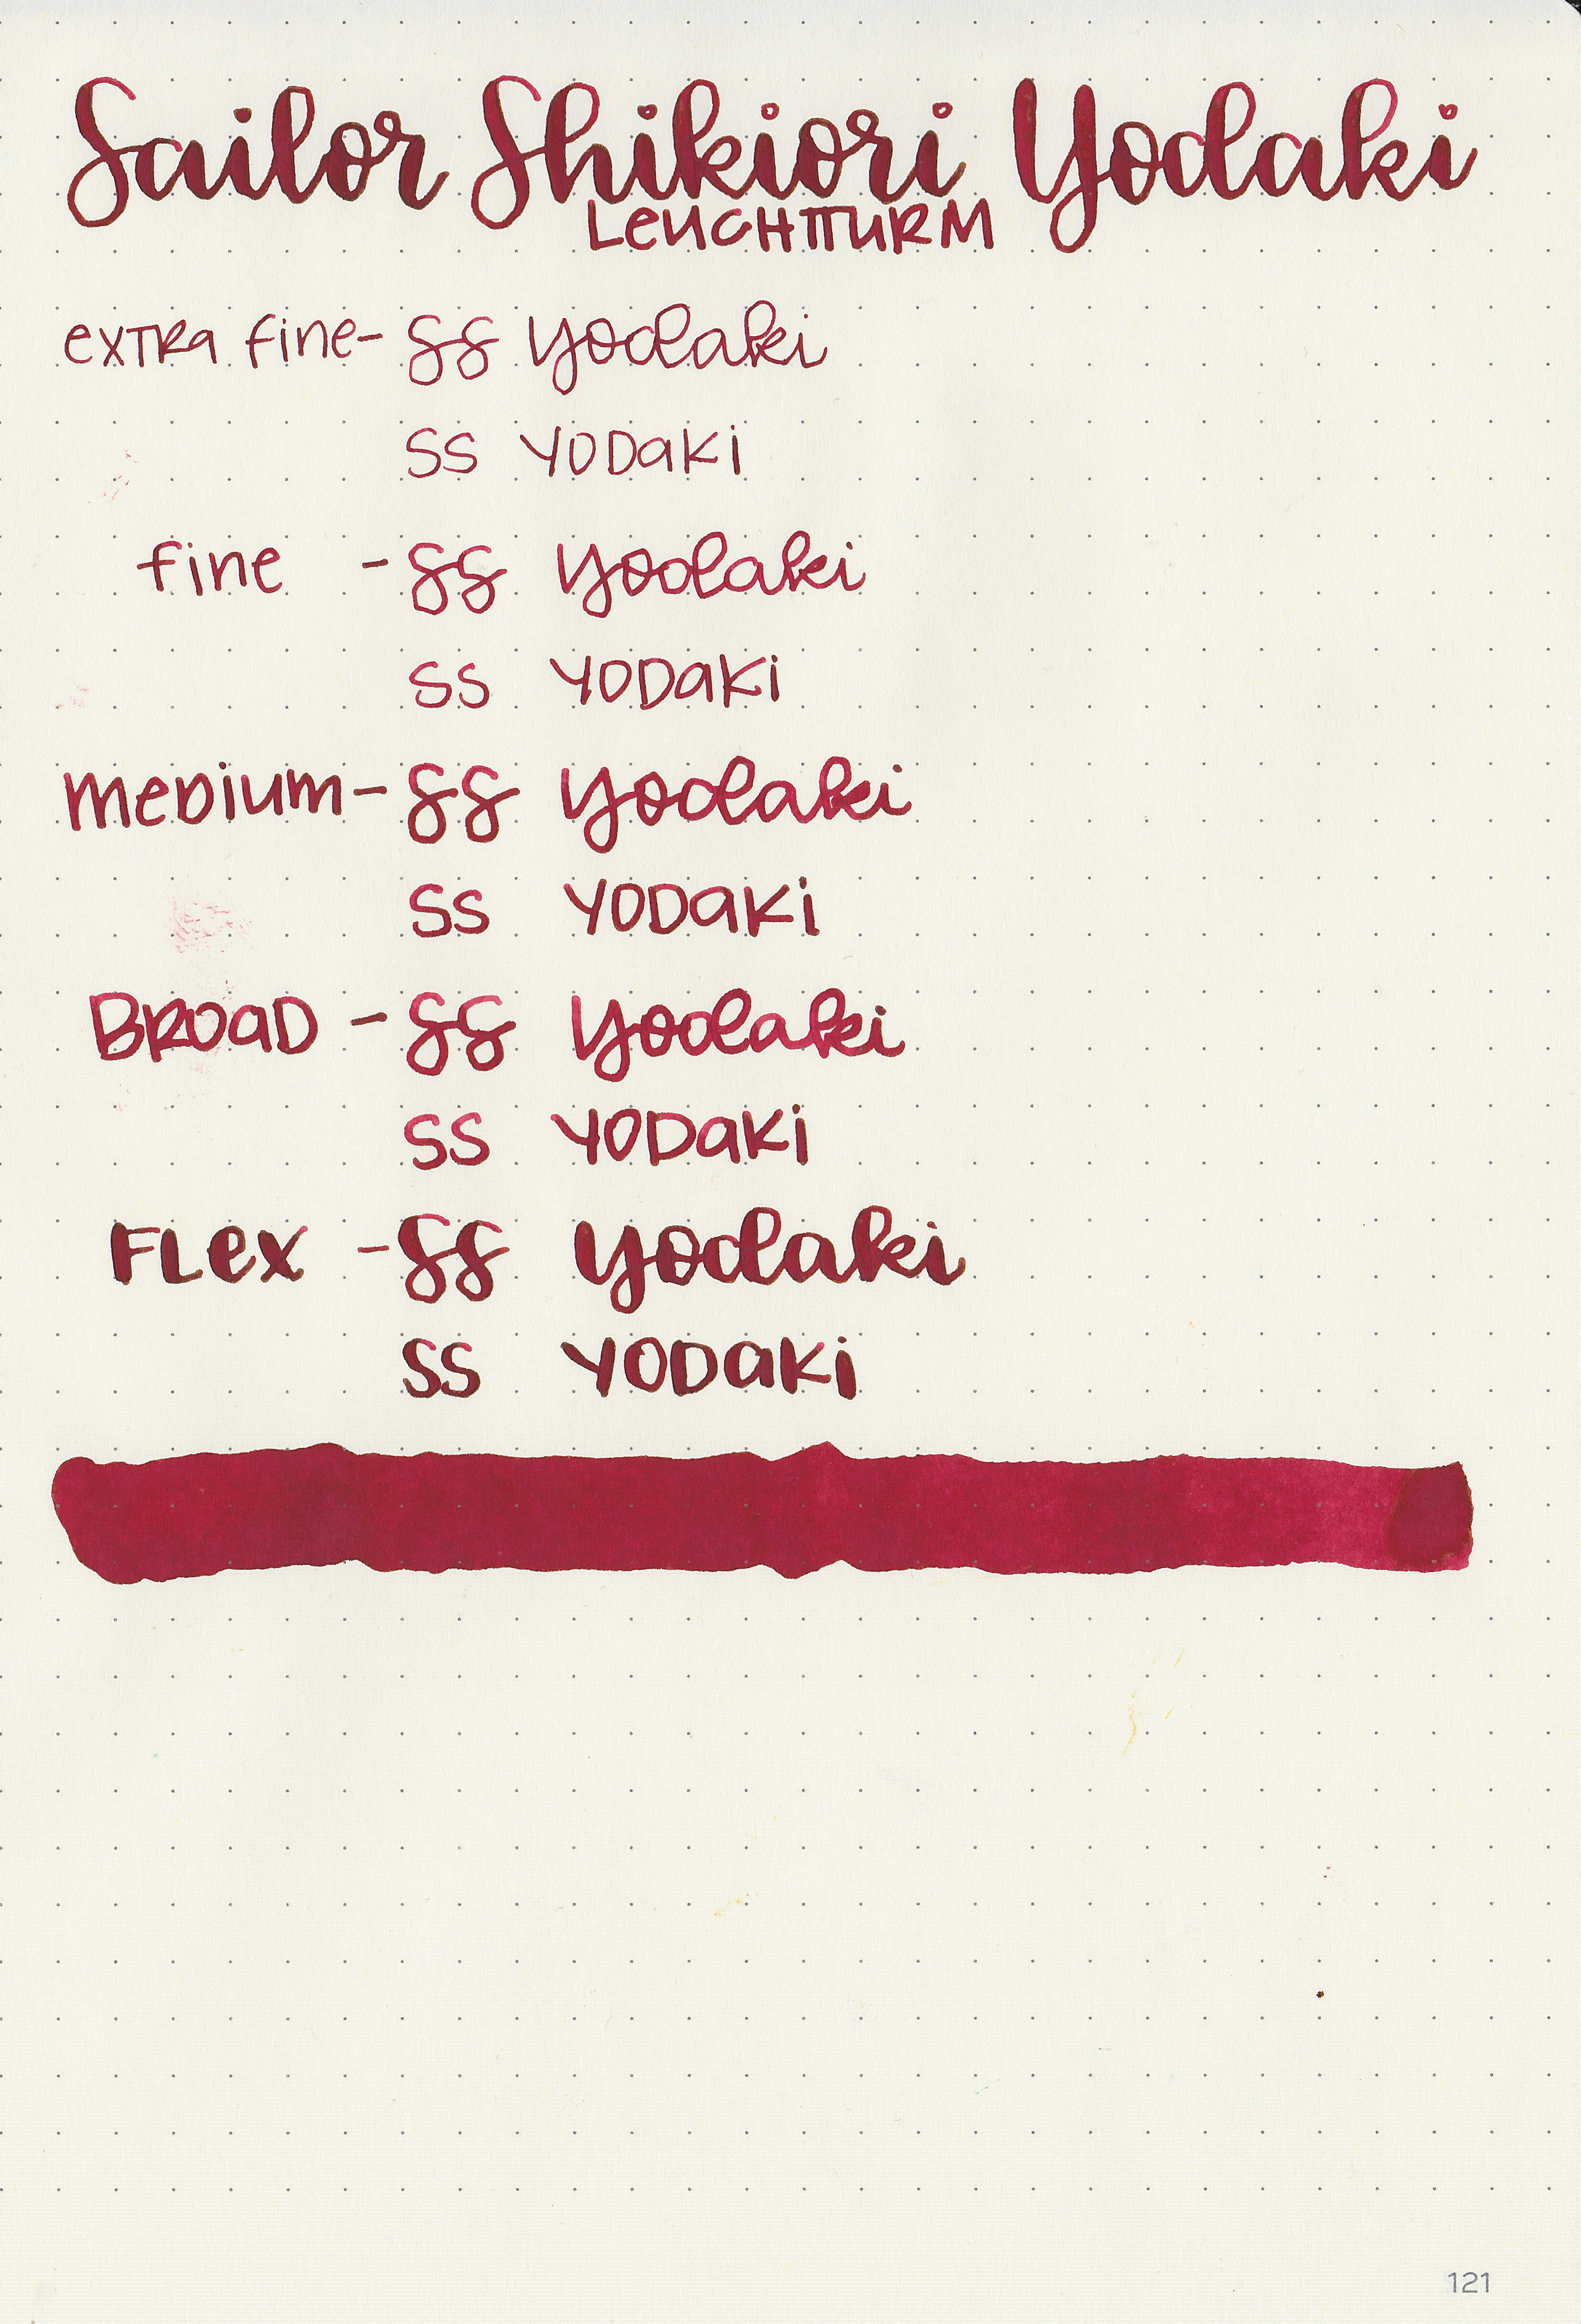 Sailor Shikiori Yodaki
LeuchTTURM
exTRa fine- SS Yodaki
SS YODaKi
fine - SS Yodaki
SS YODaKi
meDium - SS Yodaki
SS YODaKi
BROaD - SS Yodaki
SS YODaKi
FLex - SS Yodaki
SS YODaKi
121